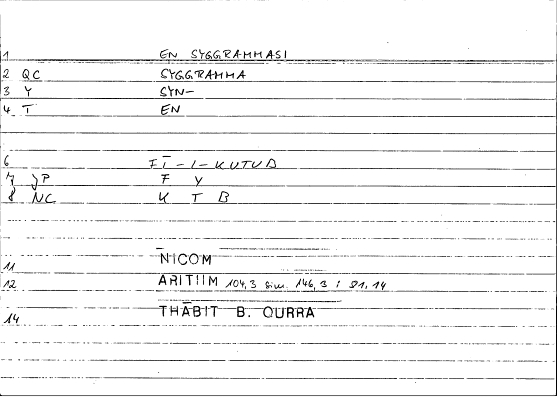 1 EN SYGGRAMMASI
2 QC SYGGRAMMA
3 Y SYN-
4 T EN
6 FĪ-L-KUTUB
7 JP F Y
8 NC K T B
11 NICOM
12 ARITHM 104,3 sim. 146,3 : 91,14
14 THĀBIT B. QURRA